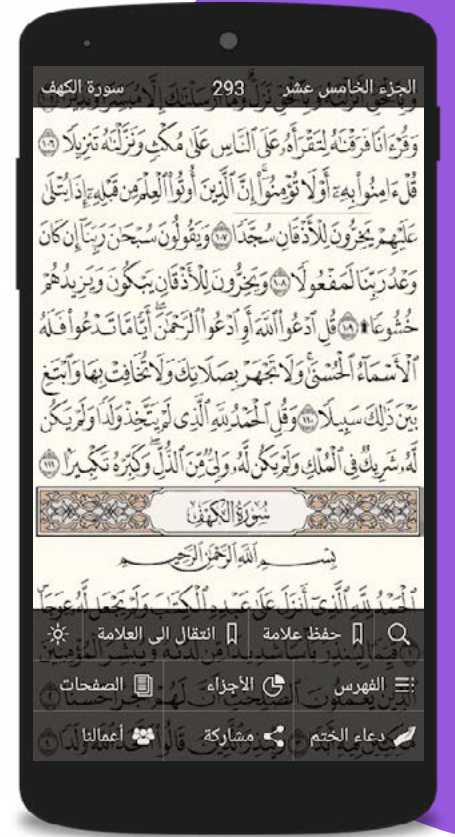 الجزء الخامس عشر 293 سورة الكهف
وَبِٱلْحَقِّ أَنزَلْنَٰهُ وَبِٱلْحَقِّ نَزَلَ وَمَآ أَرْسَلْنَٰكَ إِلَّا مُبَشِّرًا وَنَذِيرًا
وَقُرْءَانًا فَرَقْنَٰهُ لِتَقْرَأَهُۥ عَلَى ٱلنَّاسِ عَلَىٰ مُكْثٍ وَنَزَّلْنَٰهُ تَنزِيلًا ١٠٦
قُلْ ءَامِنُوا۟ بِهِۦٓ أَوْ لَا تُؤْمِنُوٓا۟ إِنَّ ٱلَّذِينَ أُوتُوا۟ ٱلْعِلْمَ مِن قَبْلِهِۦٓ إِذَا يُتْلَىٰ
عَلَيْهِمْ يَخِرُّونَ لِلْأَذْقَانِ سُجَّدًا ١٠٧ وَيَقُولُونَ سُبْحَٰنَ رَبِّنَآ إِن كَانَ
وَعْدُ رَبِّنَا لَمَفْعُولًا ١٠٨ وَيَخِرُّونَ لِلْأَذْقَانِ يَبْكُونَ وَيَزِيدُهُمْ
خُشُوعًا ۩ ١٠٩ قُلِ ٱدْعُوا۟ ٱللَّهَ أَوِ ٱدْعُوا۟ ٱلرَّحْمَٰنَ ۖ أَيًّا مَّا تَدْعُوا۟ فَلَهُ
ٱلْأَسْمَآءُ ٱلْحُسْنَىٰ ۚ وَلَا تَجْهَرْ بِصَلَاتِكَ وَلَا تُخَافِتْ بِهَا وَٱبْتَغِ
بَيْنَ ذَٰلِكَ سَبِيلًا ١١٠ وَقُلِ ٱلْحَمْدُ لِلَّهِ ٱلَّذِى لَمْ يَتَّخِذْ وَلَدًا وَلَمْ يَكُن
لَّهُۥ شَرِيكٌ فِى ٱلْمُلْكِ وَلَمْ يَكُن لَّهُۥ وَلِىٌّ مِّنَ ٱلذُّلِّ ۖ وَكَبِّرْهُ تَكْبِيرًۢا ١١١
سُورَةُ ٱلْكَهْفِ
بِسْمِ ٱللَّهِ ٱلرَّحْمَٰنِ ٱلرَّحِيمِ
ٱلْحَمْدُ لِلَّهِ ٱلَّذِىٓ أَنزَلَ عَلَىٰ عَبْدِهِ ٱلْكِتَٰبَ وَلَمْ يَجْعَل لَّهُۥ عِوَجَا
حفظ علامة انتقال الى العلامة
قَيِّمًا لِّيُنذِرَ بَأْسًا شَدِيدًا مِّن لَّدُنْهُ وَيُبَشِّرَ ٱلْمُؤْمِنِينَ
الفهرس الأجزاء الصفحات
ٱلَّذِينَ يَعْمَلُونَ ٱلصَّٰلِحَٰتِ أَنَّ لَهُمْ أَجْرًا حَسَنًا
دعاء الختم مشاركة أعمالنا